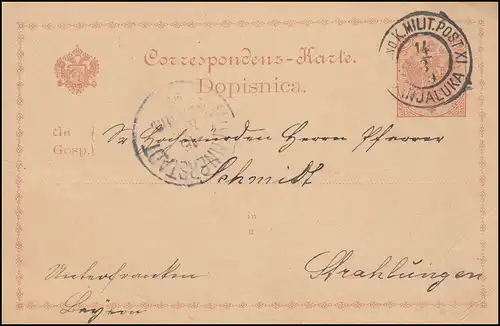 Correspondenz-Karte.
Dopisnica.
K. MILIT. POST XI
14
BANJALUKA
An
Gosp.
Sr Hochwürden Herrn Pfarrer
Schmidt
in
u
Unterfranken
Strahlungen
Bayern